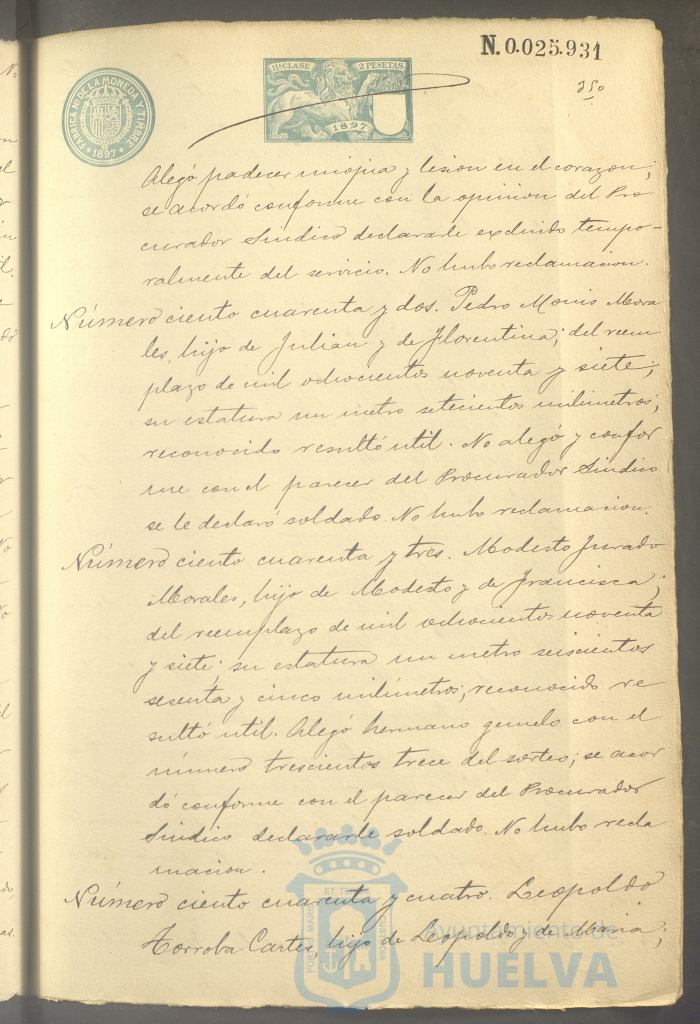 N.0.025.931
11ª CLASE 2 PESETAS
1897
FABRICA NL DE LA MONEDA Y TIMBRE
1897
350
Alegó padecer miopia y lesion en el corazon;
se acordó conforme con la opinion del Pro
curador Sindico declararle excluido tempo-
ralmente del servicio. No hubo reclamacion.
Número ciento cuarenta y dos. Pedro Monis Mora
les, hijo de Julian y de Florentina; del reem
plazo de mil ochocientos noventa y siete;
su estatura un metro setecientos milimetros;
reconocido resultó util. No alegó y confor
me con el parecer del Procurador Sindico
se le declaró soldado. No hubo reclamacion.
Número ciento cuarenta y tres. Modesto Jurado
Morales, hijo de Modesto y de Francisca;
del reemplazo de mil ochocientos noventa
y siete; su estatura un metro seiscientos
sesenta y cinco milimetros; reconocido re
sultó util. Alegó hermano gemelo con el
número trescientos trece del sorteo; se acor
dó conforme con el parecer del Procurador
Sindico declararle soldado. No hubo recla
macion.
Número ciento cuarenta y cuatro. Leopoldo
Torroba Cartes, hijo de Leopoldo y de Maria;
Ayuntamiento de
HUELVA